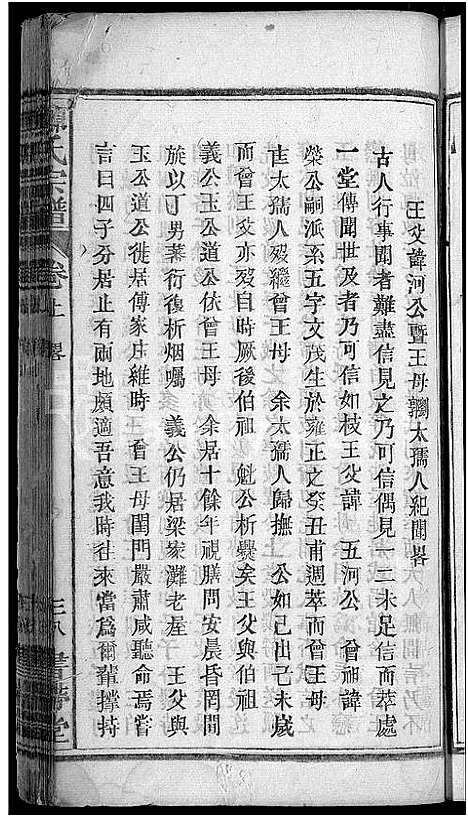 王父諱河公暨王母鄒太孺人紀聞畧
古人行事聞者難盡信見之乃可信偶見一二未足信而萃處
一堂傳聞世及者乃可信如枝王父諱 五河公 曾祖諱
榮公嗣派系五字文茂生於雍正之癸丑甫週萃而曾王母
太孺人歿繼曾王母 余太孺人歸撫 公如己出己未歲
而曾王父亦歿自時厥後伯祖 魁公析爨矣王父與伯祖
義公玉公道公依曾王母 余居十餘年視膳問安晨昏罔間
族以丁男蕃衍復析烟囑 義公仍居梁家灘老座 王父與
玉公道公徙居傅家庄維時 曾王母閨門嚴肅咸聽命焉嘗
言曰四子分居止有兩地頗適吾意我時往來當為爾輩撑持
氏宗譜
卷上 畧